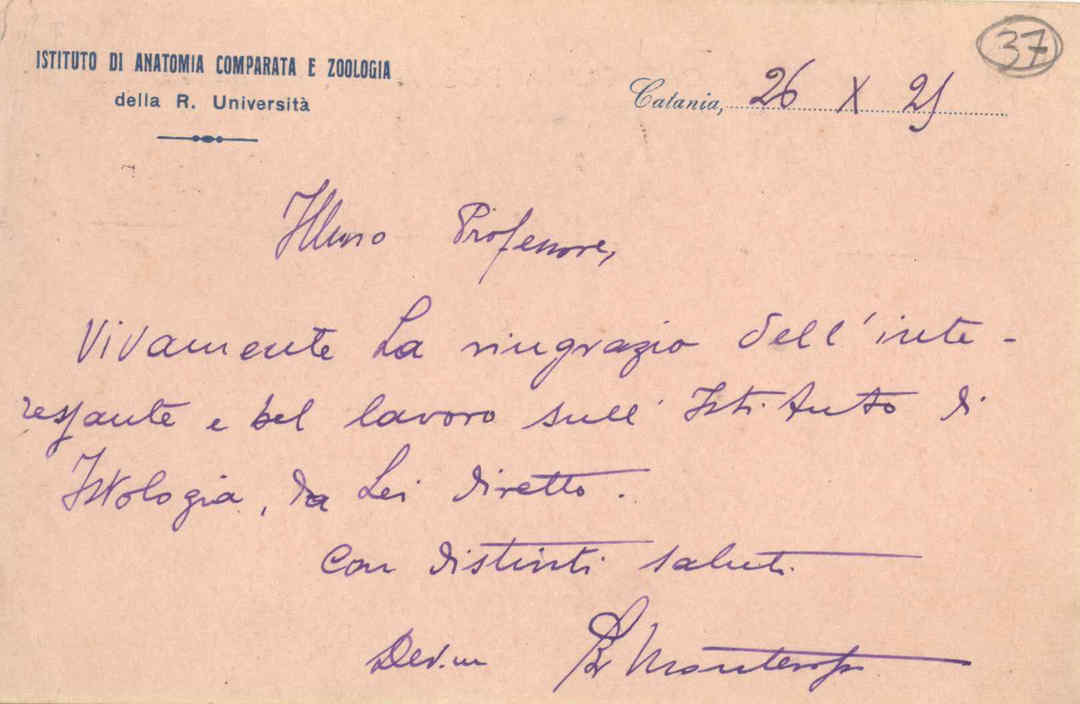 37
ISTITUTO DI ANATOMIA COMPARATA E ZOOLOGIA
della R. Università
Catania, 26 X 25
Illmo Professore,
Vivamente La ringrazio dell'inte-
ressante e bel lavoro sull'Istituto di
Istologia, da Lei diretto.
Con distinti saluti
Dev.m